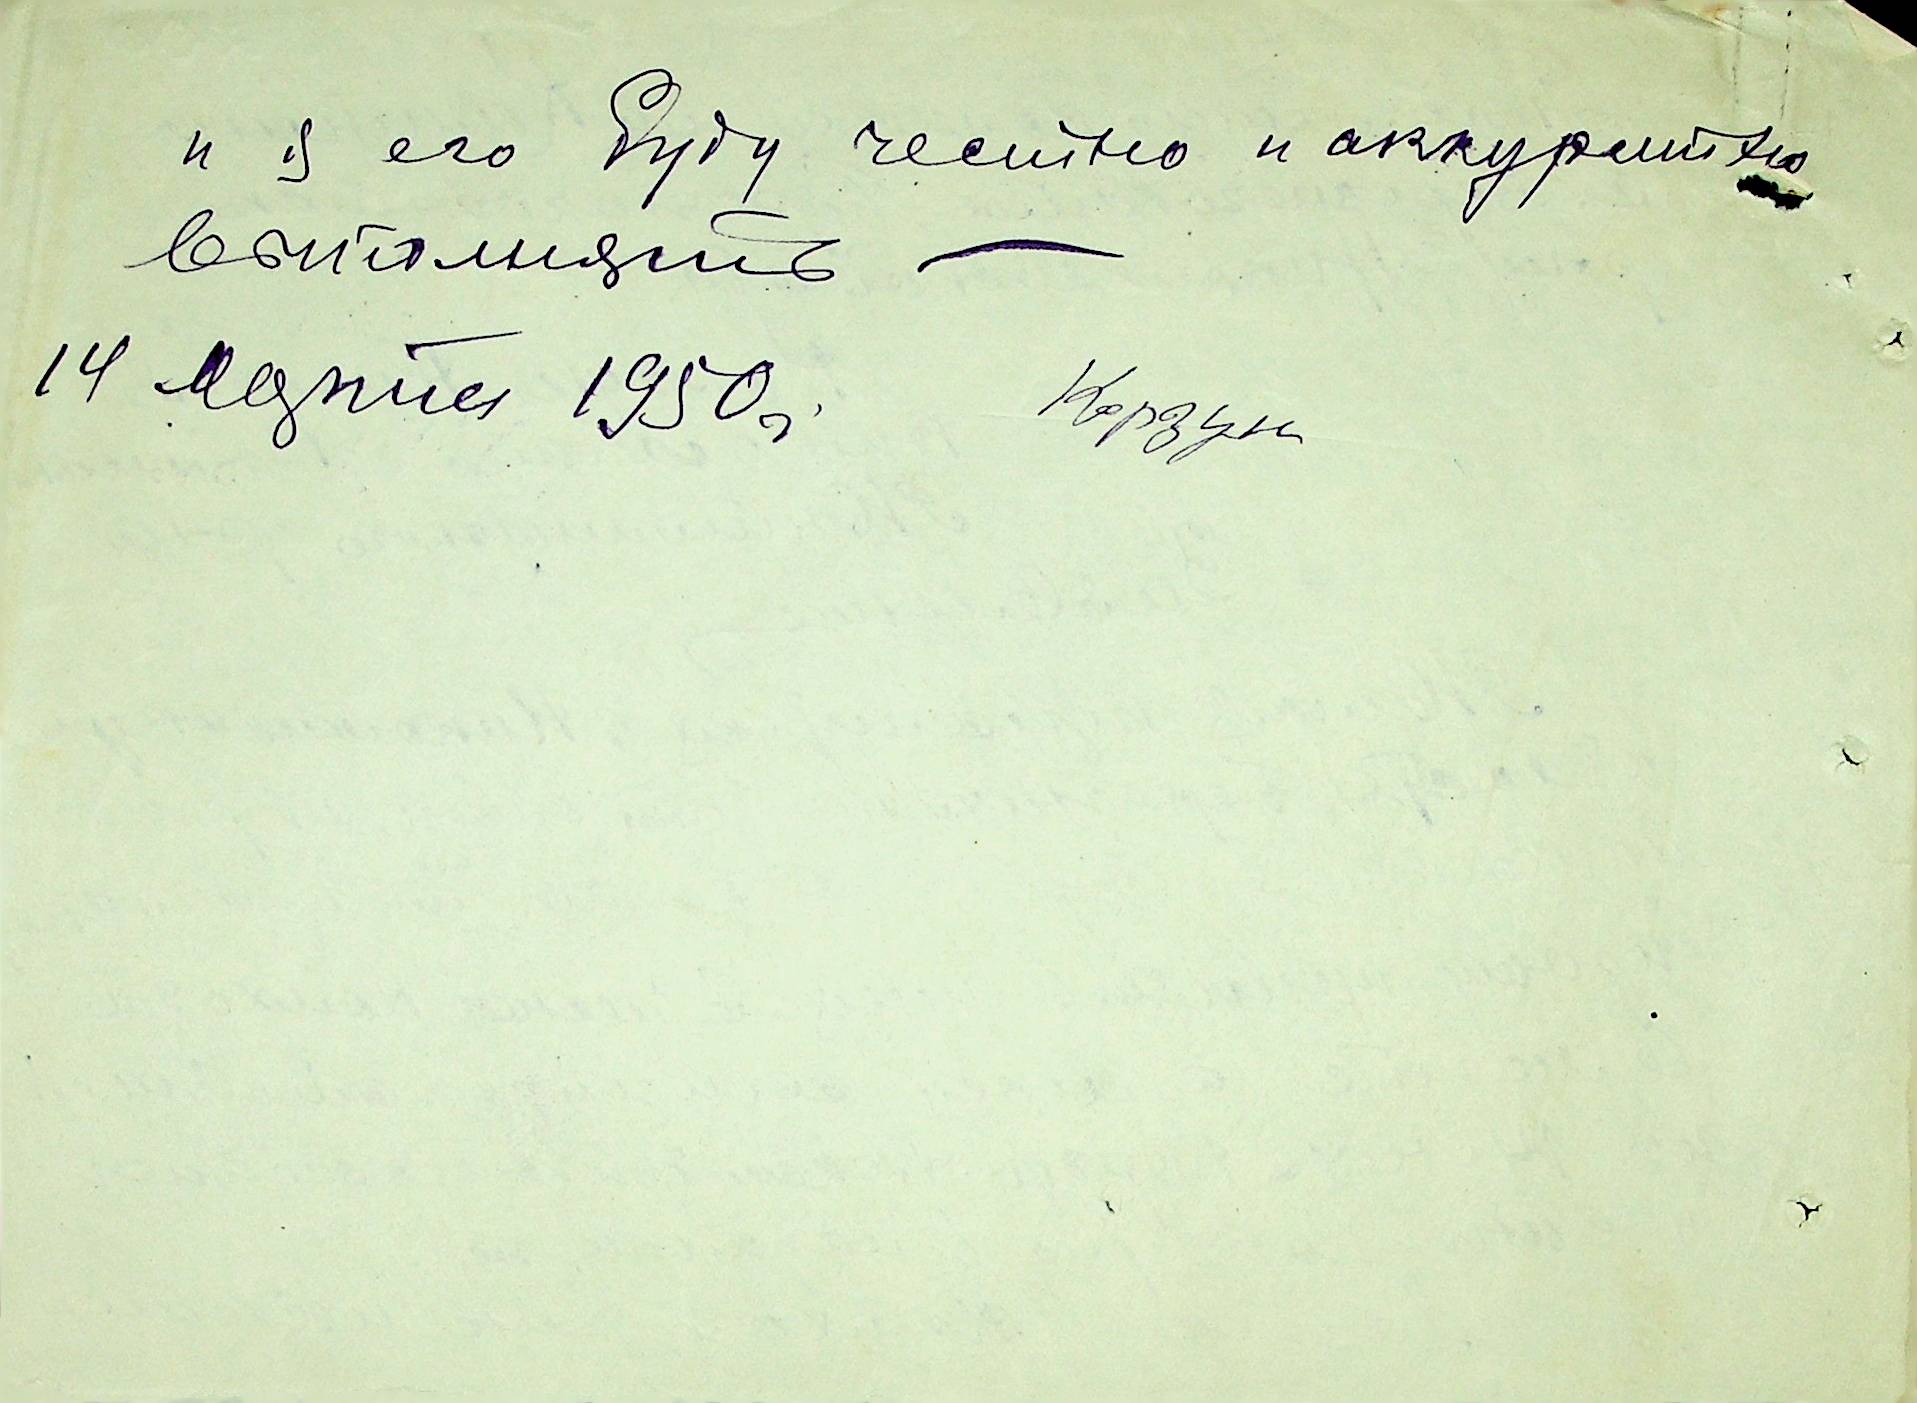 и я его буду честно и аккуратно
выполнять —
14 марта 1950 г. Корзун